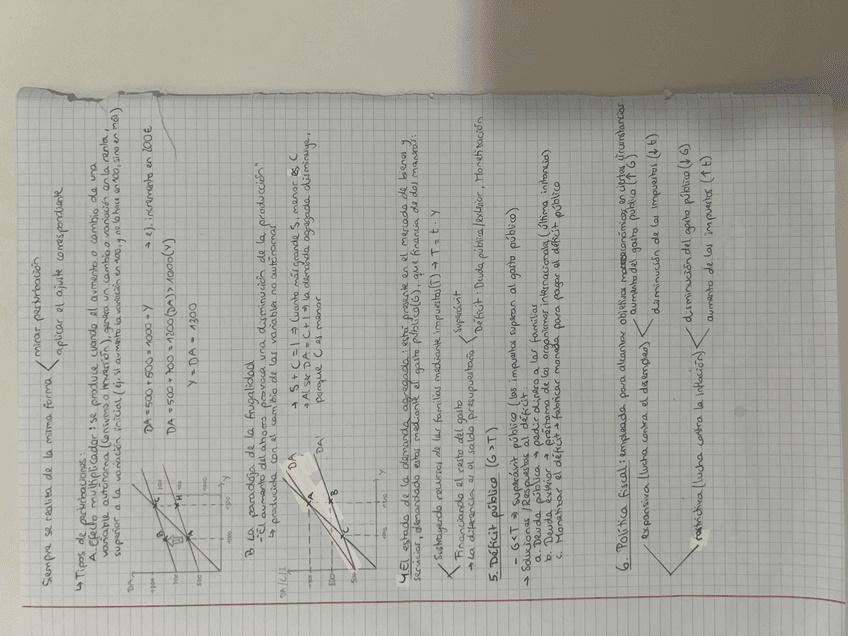 Siempre se realiza de la misma forma
mirar perturbación
aplicar el ajuste correspondiente
↳ Tipos de perturbaciones:
A. Efecto multiplicador: se produce cuando el aumento o cambio de una
variable autónoma (consumo o inversión), genera un cambio o variación en la renta,
superior a la variación inicial (ej. Si aumento la variación en 100, y no lo hace en 100, sino en más)
DA
DA = 500 + 500 = 1000 = Y → ej. incremento en 200€
DA = 500 + 700 = 1200 (DA) > 1000 (Y)
Y = DA = 1300
Y
B. La paradoja de la frugalidad
- "El aumento del ahorro provoca una disminución de la producción"
↳ producida con el cambio de las variables no autónomas
DA
DA'
→ S + C = 1 ⇒ Cuanto más grande S, menor es C
→ Al ser DA = C + I ⇒ la demanda agregada disminuye,
porque C es menor
Y
4. El estado de la demanda agregada: está presente en el mercado de bienes y
servicios, demandado estos mediante el gasto público (G), que financia de dos maneras:
Sustrayendo recursos de las familias mediante impuestos (T) → T = t · Y
Financiando el resto del gasto
→ La diferencia es el saldo presupuestario
superávit
Déficit: Deuda pública/exterior, Monetización
5. Déficit público (G > T)
- G < T ⇒ Superávit público (los impuestos superan al gasto público).
→ Soluciones / Respuestas al déficit:
a. Deuda pública → pedir dinero a las familias
b. Deuda exterior → préstamo de los organismos internacionales (última instancia)
c. Monetizar el déficit → fabricar moneda para pagar el déficit público
6. Política fiscal: empleada para alcanzar objetivos macroeconómicos en ciertas circunstancias
expansiva (lucha contra el desempleo)
aumento del gasto público (↑ G)
disminución de los impuestos (↓ t)
restrictiva (lucha contra la inflación)
disminución del gasto público (↓ G)
aumento de los impuestos (↑ t)